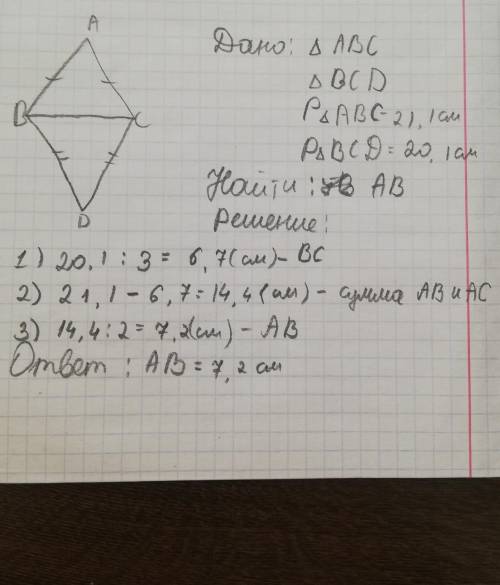 A
B
C
D
Дано: △ ABC
△ BCD
P△ABC=21,1см
P△BCD=20,1см
Найти: AB
Решение:
1) 20,1 : 3 = 6,7(см)- BC
2) 21,1 - 6,7=14,4(см) - сумма AB и AC
3) 14,4:2=7,2(см) - AB
Ответ: AB=7,2 см